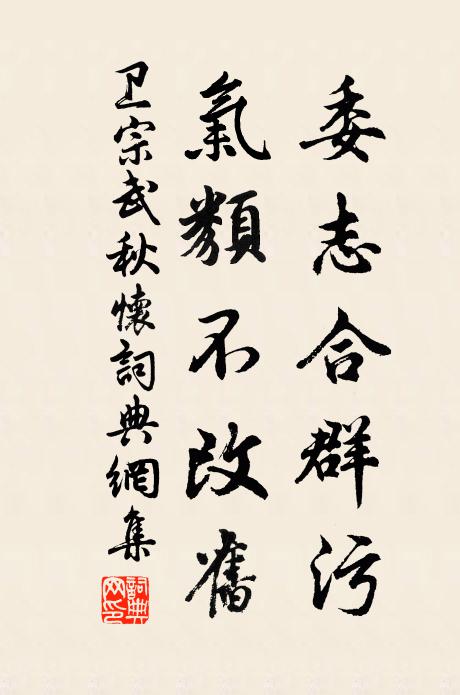 委志合群污
氣類不改舊
卫宗武秋懷詞典網集
詞典网印